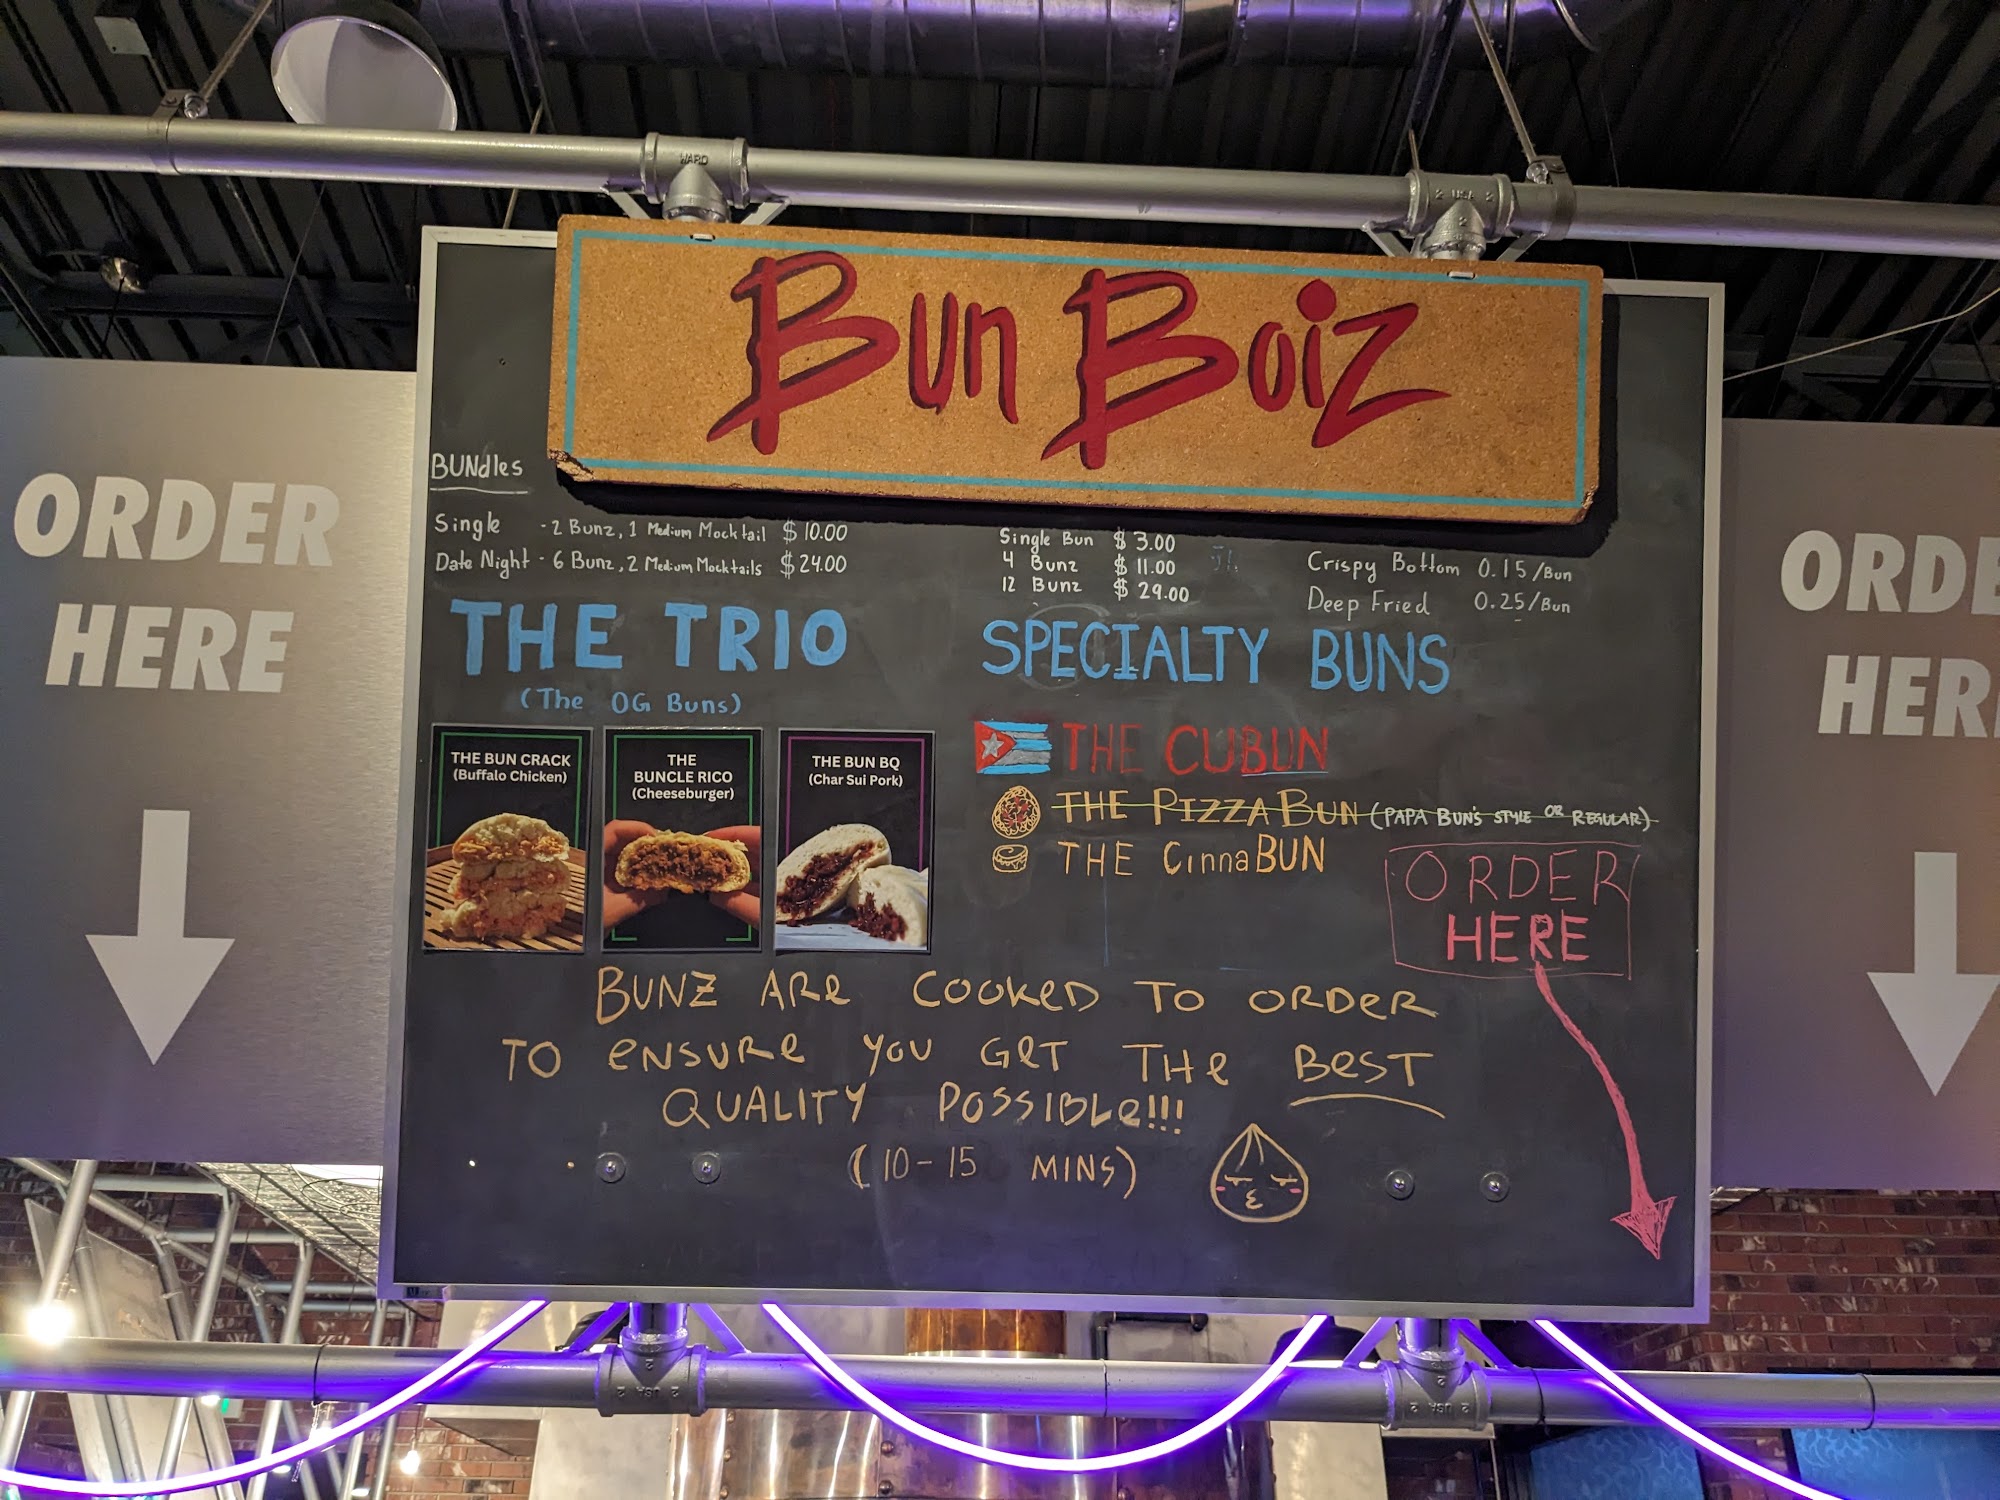 WARD
2 USA 2
2
Bun Boiz
ORDER
HERE
BUNdles
Single - 2 Bunz, 1 Medium Mocktail $10.00
Date Night - 6 Bunz, 2 Medium Mocktails $24.00
Single Bun $3.00
4 Bunz $11.00
12 Bunz $29.00
Crispy Bottom 0.15/Bun
Deep Fried 0.25/Bun
THE TRIO
(The OG Buns)
THE BUN CRACK
(Buffalo Chicken)
THE
BUNCLE RICO
(Cheeseburger)
THE BUN BQ
(Char Sui Pork)
SPECIALTY BUNS
THE CUBUN
THE PIZZA BUN (PAPA BUN'S STYLE OR REGULAR)
THE CinnaBUN
ORDER
HERE
BUNZ ARE COOKED TO ORDER
TO ENSURE YOU GET THE BEST
QUALITY POSSIBLE!!!
(10-15 MINS)
ORDE
HER
2
2 USA 2
2
2 USA 2